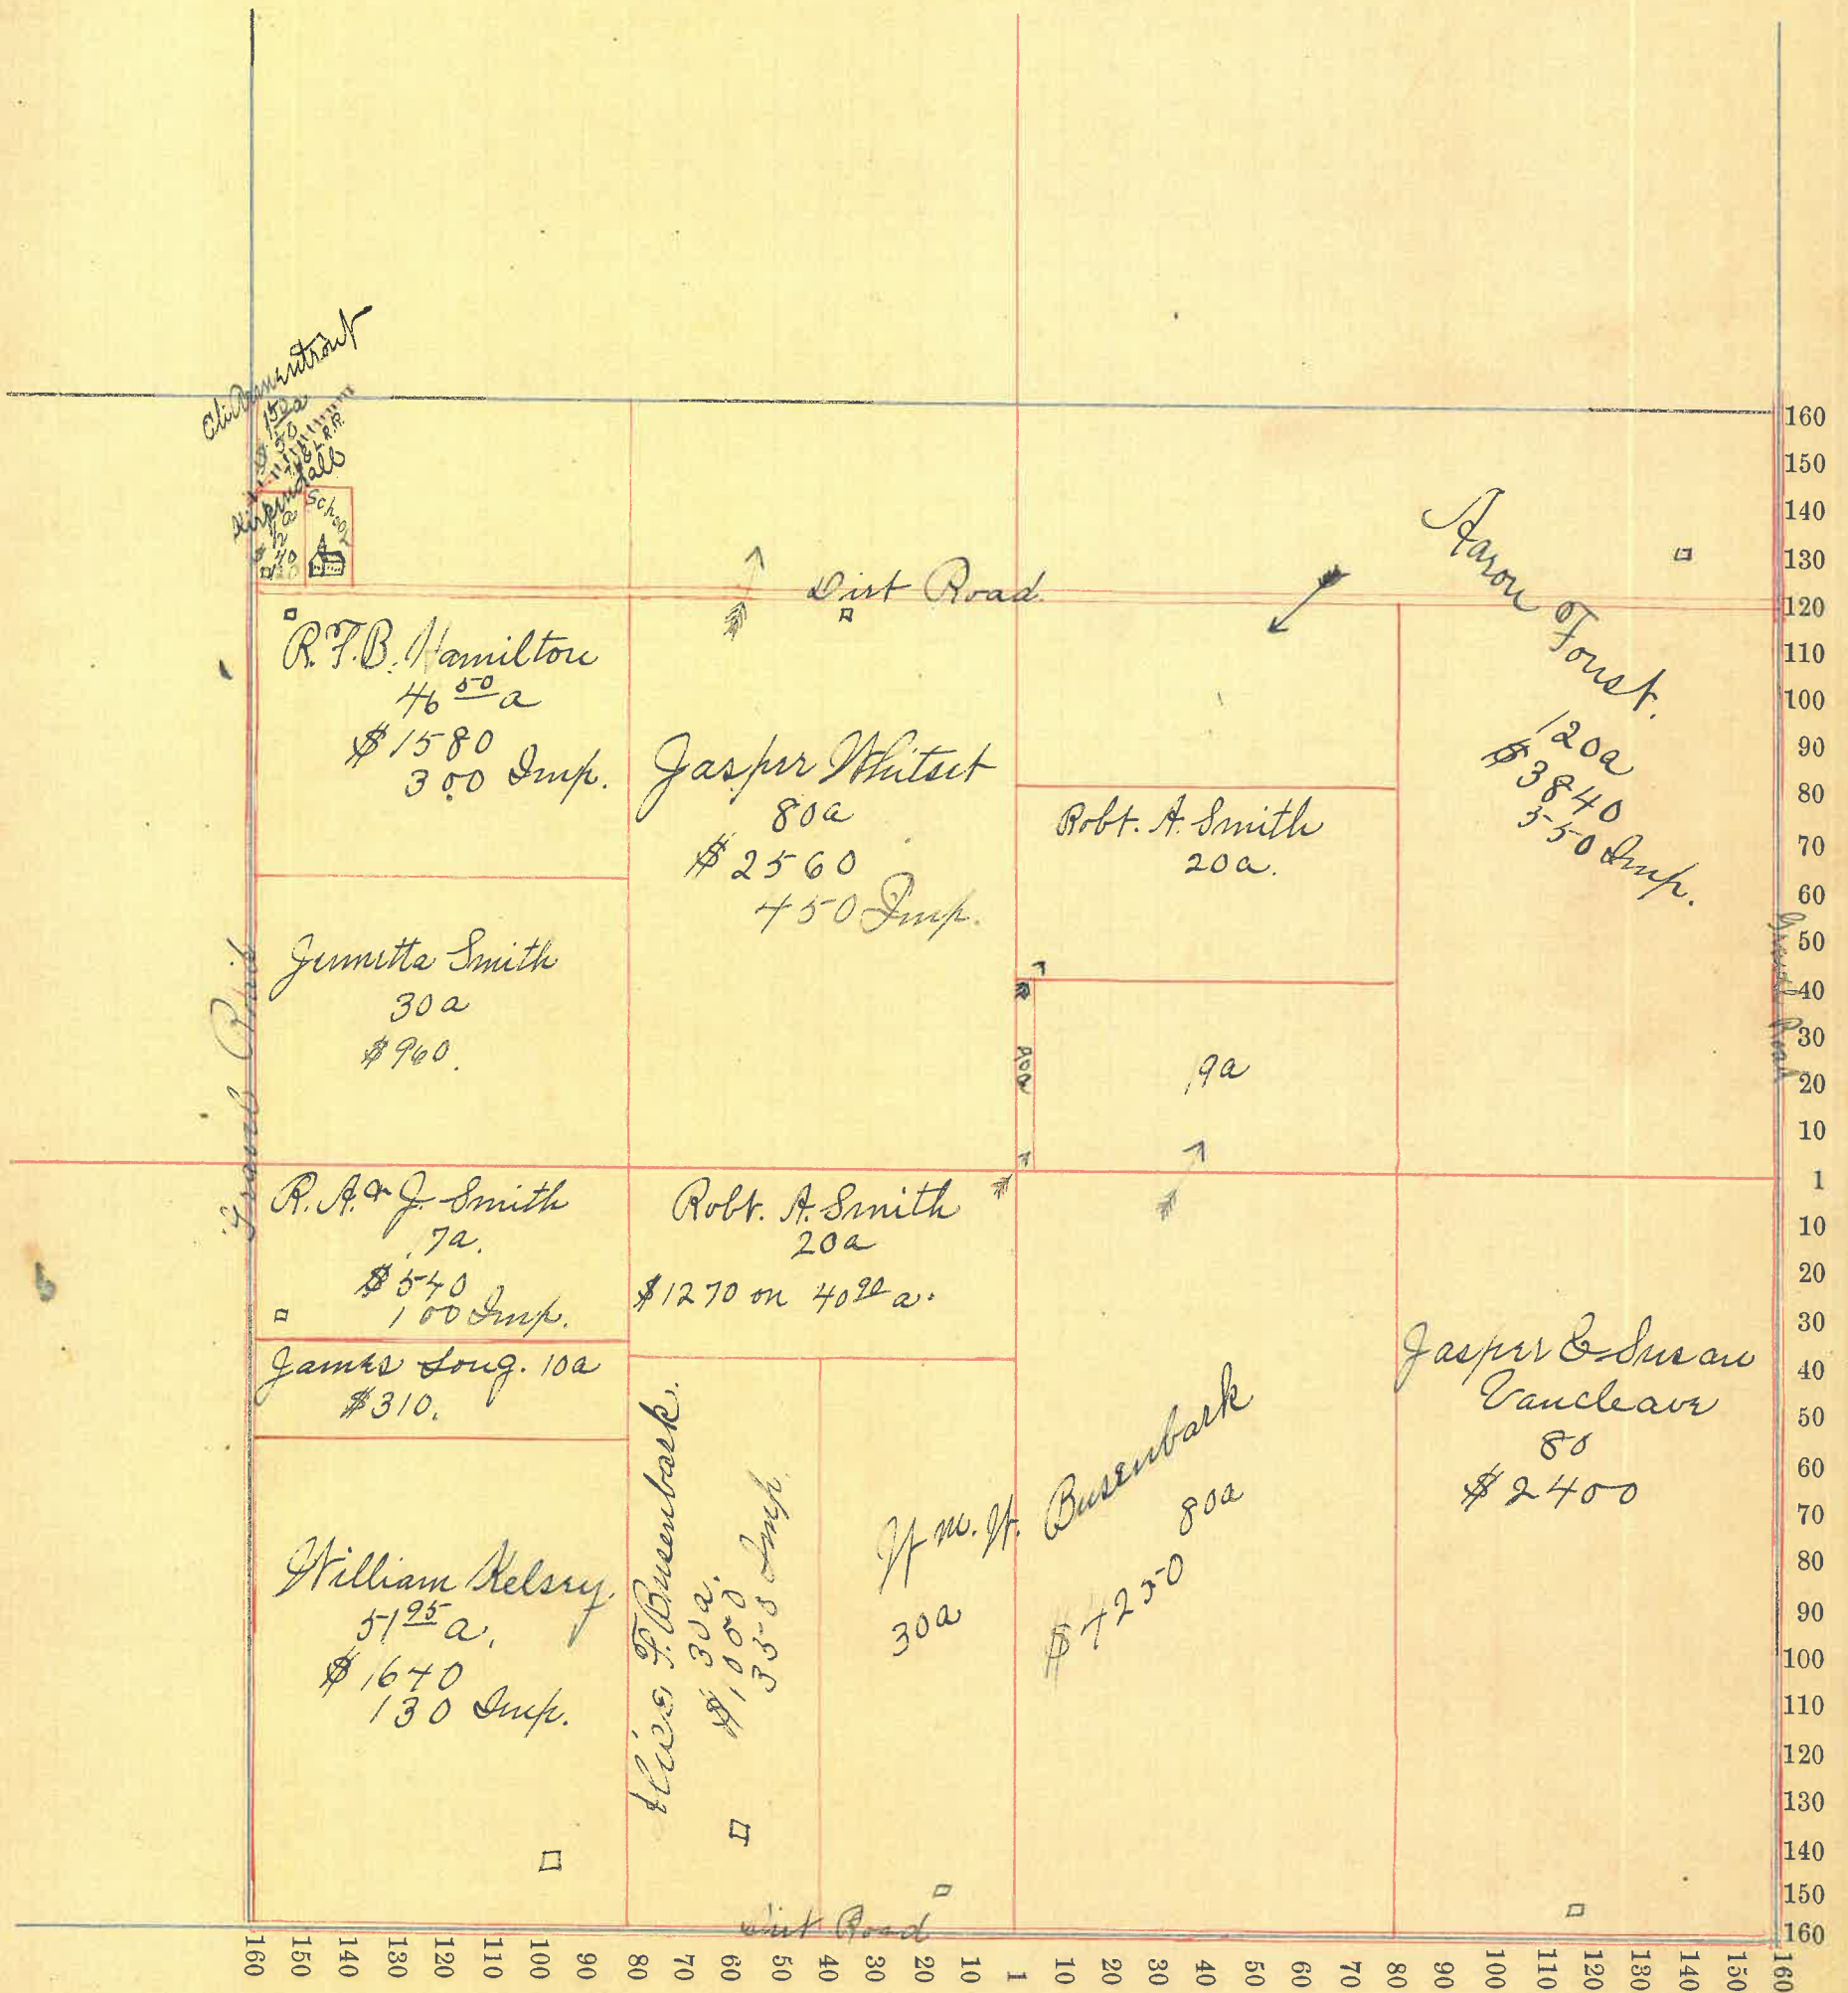 150a
$ 50
Kirkendall
1/2 a
$ 40
School
Dirt Road.
R.F.B. Hamilton
46 50 a
$1580
300 Imp.
Jasper Whitset
80a
$2560
450 Imp.
Aaron Foust.
120a
$3840
350 Imp.
Robt. A. Smith
20a.
Jennetta Smith
30a
$960.
90a
19a
Gravel Road
Gravel Road
R. A. & J. Smith
7a.
$540
100 Imp.
Robt. A. Smith
20a
$1270 on 40 90 a.
James Long. 10a
$310.
William Kelsey.
51 95 a.
$1640
130 Imp.
Alice F. Busenbark.
30a.
$1000
350 Imp
Wm. W. Busenbark
30a
80a
$4250
Jasper & Susan
Vancleave
80
$2400
Dirt Road
160
150
140
130
120
110
100
90
80
70
60
50
40
30
20
10
1
10
20
30
40
50
60
70
80
90
100
110
120
130
140
150
160
160 150 140 130 120 110 100 90 80 70 60 50 40 30 20 10 1 10 20 30 40 50 60 70 80 90 100 110 120 130 140 150 160